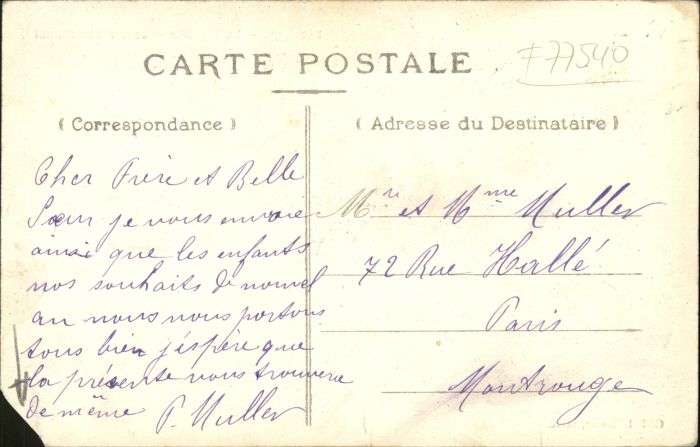 CARTE POSTALE
F 77540
( Correspondance )
Cher Frère et Belle
Sœur je vous envoie
ainsi que les enfants
nos souhaits de nouvel
an nous nous portons
tous bien j'éspère que
la présente vous trouvera
de même P. Muller
( Adresse du Destinataire )
Mr et Mme Muller
72 Rue Hallé
Paris
Montrouge